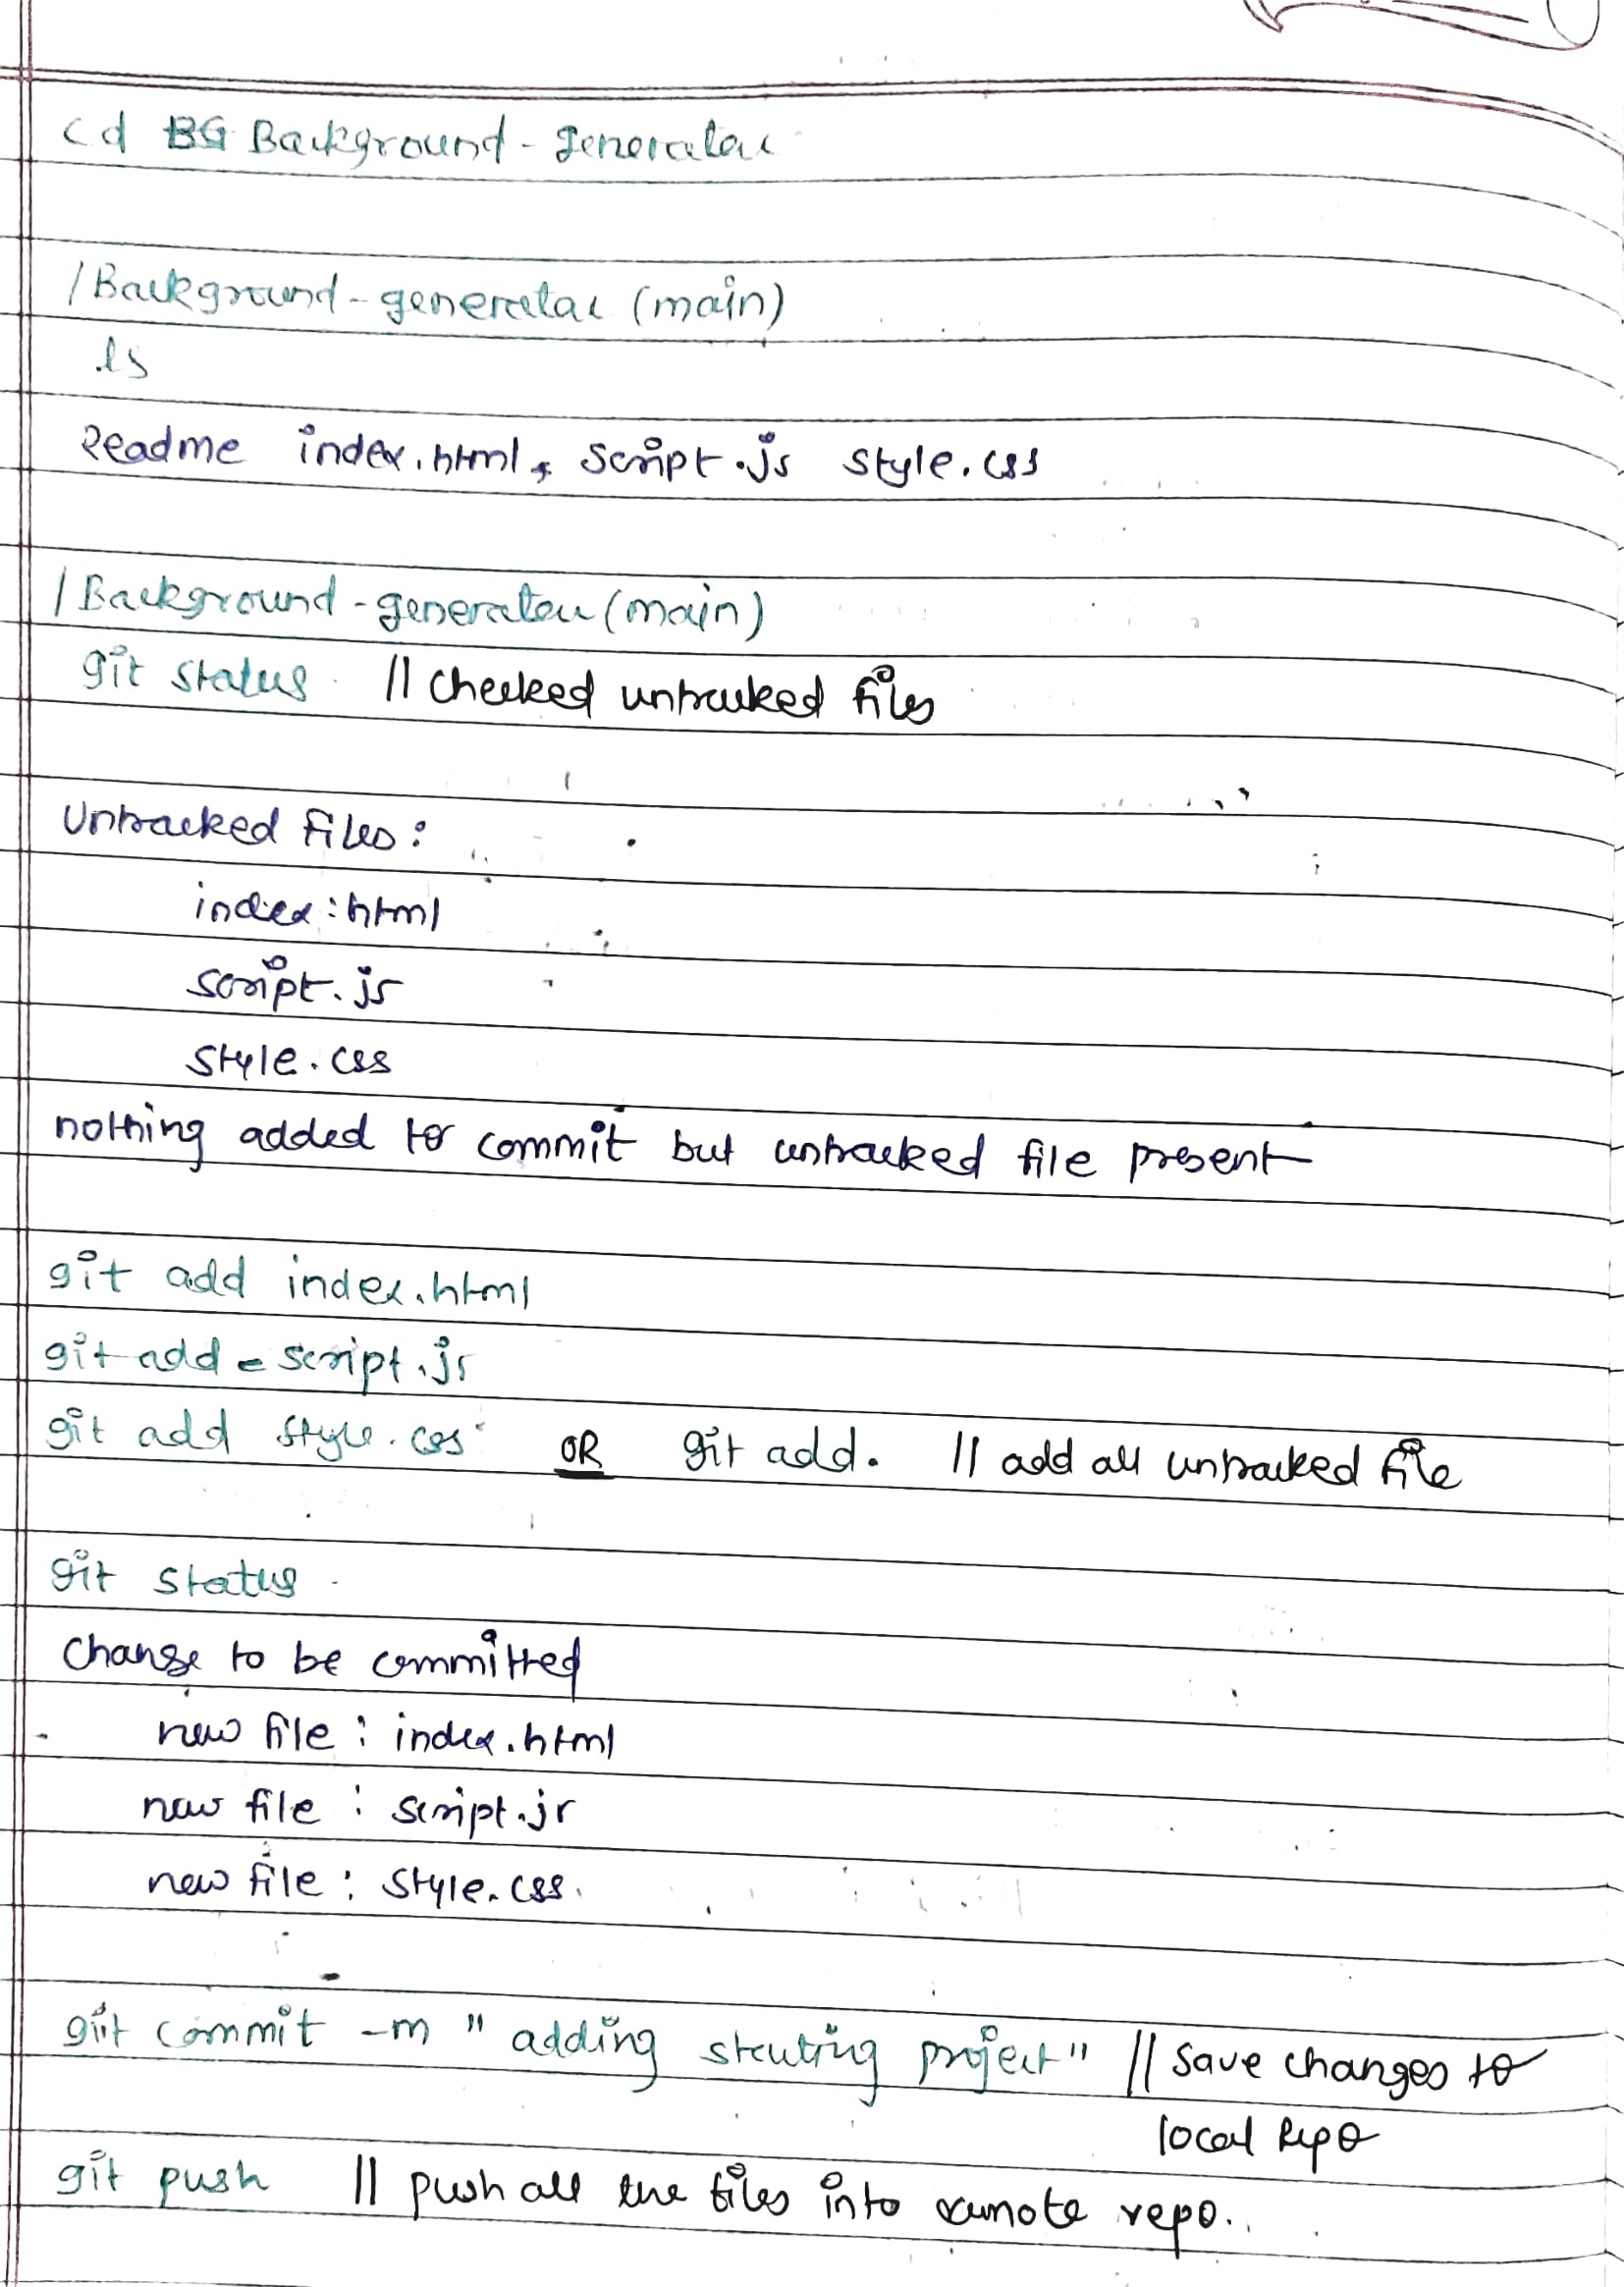 cd BG Background-generator
/Background-generator (main)
ls
Readme index.html, script.js style.css
/Background-generator (main)
git status // checked untracked files
Untracked files:
index.html
script.js
style.css
nothing added to commit but untracked file present
git add index.html
git add - script.js
git add style.css OR git add. // add all untracked file
git status
Change to be committed
new file : index.html
new file : script.js
new file : style.css
git commit -m "adding starting project" // save changes to
local Repo
git push // push all the files into remote repo.